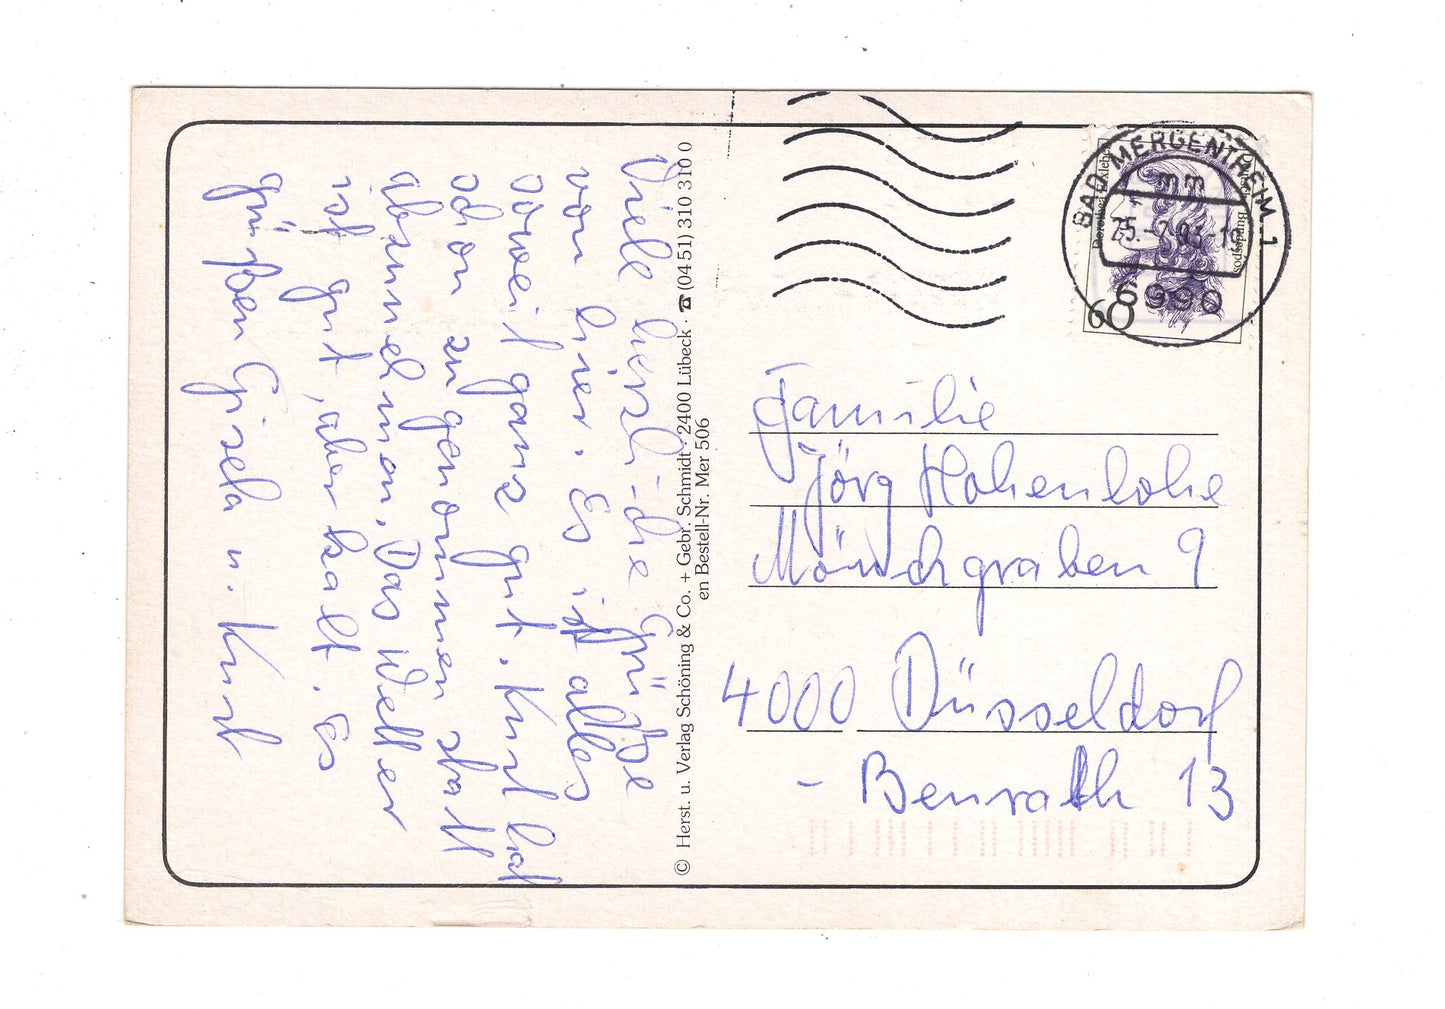 Viele herzliche Grüße
von hier. Es ist alles
soweit ganz gut. Kurt hat
schon zugenommen statt
abzunehmen. Das Wetter
ist gut, aber kalt. Es
grüßen Gisela u. Kurt
© Herst. u. Verlag Schöning & Co. + Gebr. Schmidt · 2400 Lübeck · ☎ (04 51) 310 310 0
en Bestell-Nr. Mer 506
BAD MERGENTHEIM 1
mm
6990
60
Deutsche Bundespost
Familie
Jörg Hohenlohe
Mönchgraben 9
4000 Düsseldorf
- Benrath 13